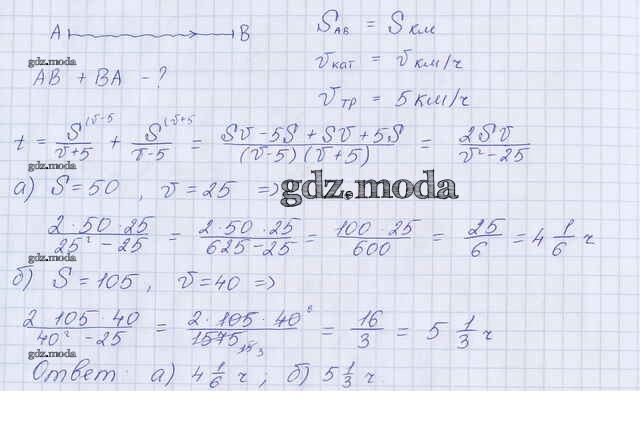 A B S_AB = S км
gdz.moda
AB + BA - ? v_кат = v км/ч
v_тр = 5 км/ч
t = S/(v+5) (v-5 + S/(v-5) (v+5 = (Sv - 5S + Sv + 5S)/((v-5)(v+5)) = 2Sv/(v² - 25)
gdz.moda
а) S = 50 , v = 25 => gdz.moda
(2 · 50 · 25)/(25² - 25) = (2 · 50 · 25)/(625 - 25) = (100 · 25)/600 = 25/6 = 4 1/6 ч
gdz.moda
б) S = 105 , v = 40 =>
(2 · 105 · 40)/(40² - 25) = (2 · 105 · 40 8)/(1575 15 3) = 16/3 = 5 1/3 ч
gdz.moda
Ответ: а) 4 1/6 ч ; б) 5 1/3 ч.